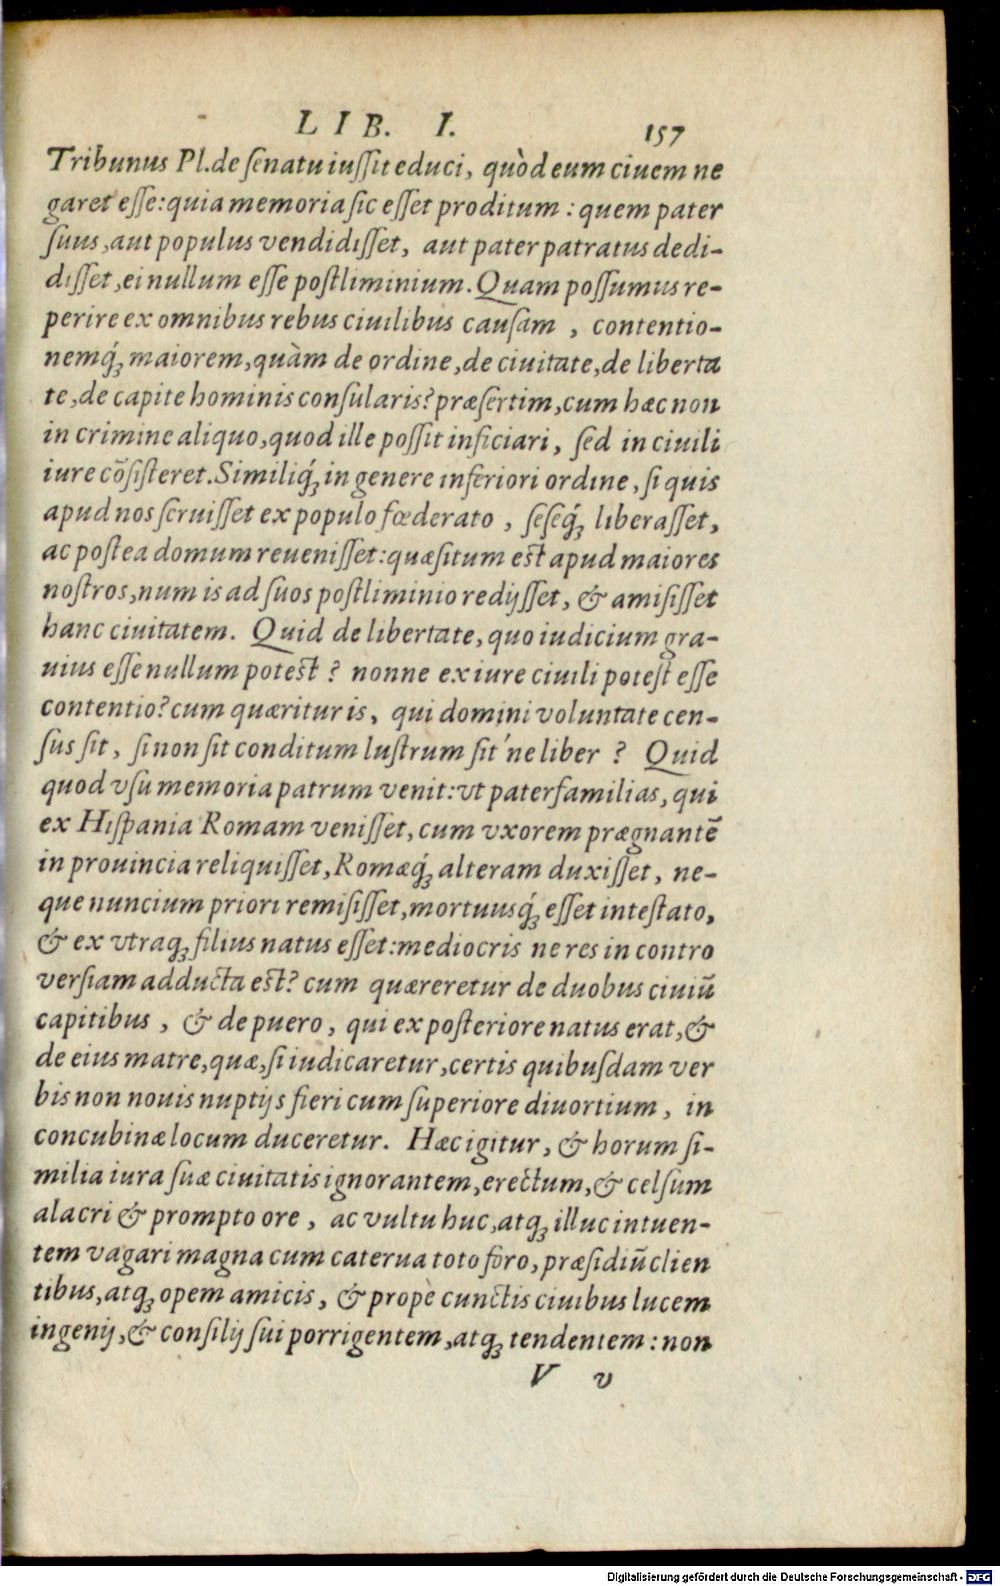 LIB. I. 157
Tribunus Pl. de ſenatu iuſſit educi, quòd eum ciuem ne
garet eſſe: quia memoria ſic eſſet proditum: quem pater
ſuus, aut populus vendidiſſet, aut pater patratus dedi-
diſſet, ei nullum eſſe poſtliminium. Quam poſſumus re-
perire ex omnibus rebus ciuilibus cauſam, contentio-
nemq́; maiorem, quàm de ordine, de ciuitate, de liberta
te, de capite hominis conſularis? præſertim, cum hæc non
in crimine aliquo, quod ille poſſit inficiari, ſed in ciuili
iure cõſiſteret. Similiq́; in genere inferiori ordine, ſi quis
apud nos ſeruiſſet ex populo fœderato, ſeſeq́; liberaſſet,
ac poſtea domum reueniſſet: quæſitum eſt apud maiores
noſtros, num is ad ſuos poſtliminio redijſſet, & amiſiſſet
hanc ciuitatem. Quid de libertate, quo iudicium gra-
uius eſſe nullum poteſt? nonne ex iure ciuili poteſt eſſe
contentio? cum quæritur is, qui domini voluntate cen-
ſus ſit, ſi non ſit conditum luſtrum ſit'ne liber? Quid
quod vſu memoria patrum venit: vt paterfamilias, qui
ex Hiſpania Romam veniſſet, cum vxorem prægnantē
in prouincia reliquiſſet, Romæq́; alteram duxiſſet, ne-
que nuncium priori remiſiſſet, mortuusq́; eſſet inteſtato,
& ex vtraq; filius natus eſſet: mediocris ne res in contro
verſiam adducta eſt? cum quæreretur de duobus ciuiũ
capitibus, & de puero, qui ex poſteriore natus erat, &
de eius matre, quæ, ſi iudicaretur, certis quibuſdam ver
bis non nouis nuptijs fieri cum ſuperiore diuortium, in
concubinæ locum duceretur. Hæc igitur, & horum ſi-
milia iura ſuæ ciuitatis ignorantem, erectum, & celſum
alacri & prompto ore, ac vultu huc, atq; illuc intuen-
tem vagari magna cum caterua toto foro, præſidiũ clien
tibus, atq; opem amicis, & propè cunctis ciuibus lucem
ingenij, & conſilij ſui porrigentem, atq; tendentem: non
V v
Digitalisierung gefördert durch die Deutsche Forschungsgemeinschaft - DFG